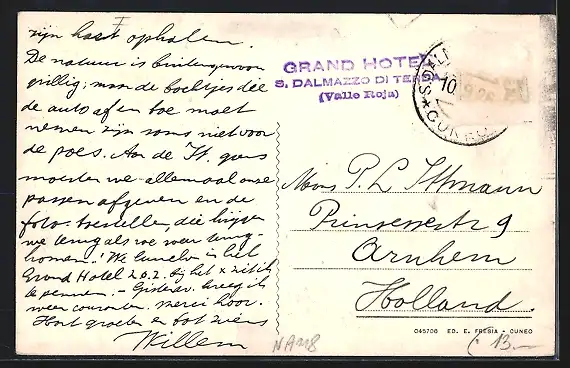 zijn hart ophalen.
De natuur is buitengewoon
grillig; maar de bochtjes die
de auto af en toe moet
nemen zijn soms niet voor
de poes. Aan de It. grens
moesten we allemaal onze
passen afgeven en de
foto-toestellen, die krijgen
we terug als we weer terug-
komen! We lunchen in het
Grand Hotel z.o.z. bij het x zit ik
te pennen. - Gisteren kreeg ik
weer couranten. merci hoor.
Hart. groeten en tot ziens
Willem
GRAND HOTEL
S. DALMAZZO DI TENDA
(Valle Roja)
CUNEO
Mons P. L. Ittmann
Prinsessestr 9
Arnhem
Holland.
045706 ED. E. FRESIA - CUNEO
13.-